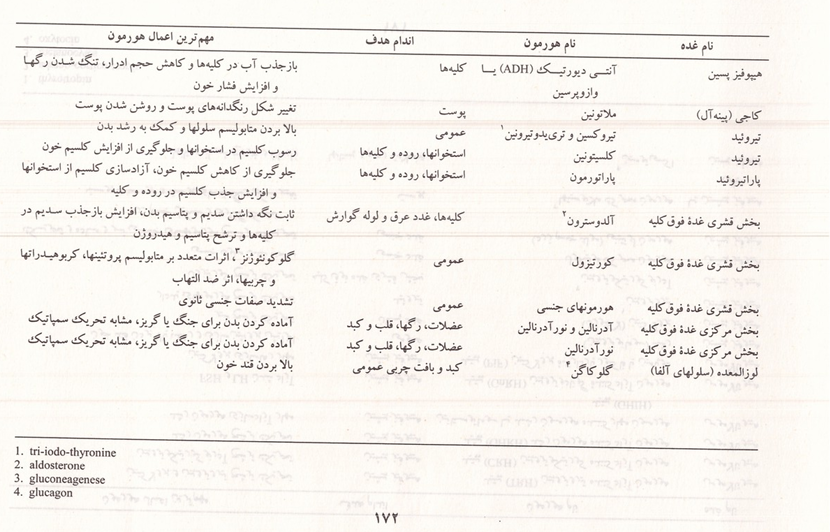 نام غده نام هورمون اندام هدف مهم‌ترین اعمال هورمون
هیپوفیز پسین آنتی دیورتیک (ADH) یا کلیه‌ها بازجذب آب در کلیه‌ها و کاهش حجم ادرار، تنگ شدن رگها
وازوپرسین و افزایش فشار خون
کاجی (پینه‌آل) ملاتونین پوست تغییر شکل رنگدانه‌های پوست و روشن شدن پوست
تیروئید تیروکسین و تری‌یدوتیرونین۱ عمومی بالا بردن متابولیسم سلولها و کمک به رشد بدن
تیروئید کلسیتونین استخوانها، روده و کلیه‌ها رسوب کلسیم در استخوانها و جلوگیری از افزایش کلسیم خون
پاراتیروئید پاراتورمون استخوانها، روده و کلیه‌ها جلوگیری از کاهش کلسیم خون، آزادسازی کلسیم از استخوانها
و افزایش جذب کلسیم در روده و کلیه
بخش قشری غدهٔ فوق‌کلیه آلدوسترون۲ کلیه‌ها، غدد عرق و لوله گوارش ثابت نگه داشتن سدیم و پتاسیم بدن، افزایش بازجذب سدیم در
کلیه‌ها و ترشح پتاسیم و هیدروژن
بخش قشری غدهٔ فوق‌کلیه کورتیزول عمومی گلوکونئوژنز۳، اثرات متعدد بر متابولیسم پروتئینها، کربوهیدراتها
و چربیها، اثر ضد التهاب
بخش قشری غدهٔ فوق‌کلیه هورمونهای جنسی عمومی تشدید صفات جنسی ثانوی
بخش مرکزی غدهٔ فوق‌کلیه آدرنالین و نورآدرنالین عضلات، رگها، قلب و کبد آماده کردن بدن برای جنگ یا گریز، مشابه تحریک سمپاتیک
بخش مرکزی غدهٔ فوق‌کلیه نورآدرنالین عضلات، رگها، قلب و کبد آماده کردن بدن برای جنگ یا گریز، مشابه تحریک سمپاتیک
لوزالمعده (سلولهای آلفا) گلوکاگن۴ کبد و بافت چربی عمومی بالا بردن قند خون
1. tri-iodo-thyronine
2. aldosterone
3. gluconeagenese
4. glucagon
۱۷۲